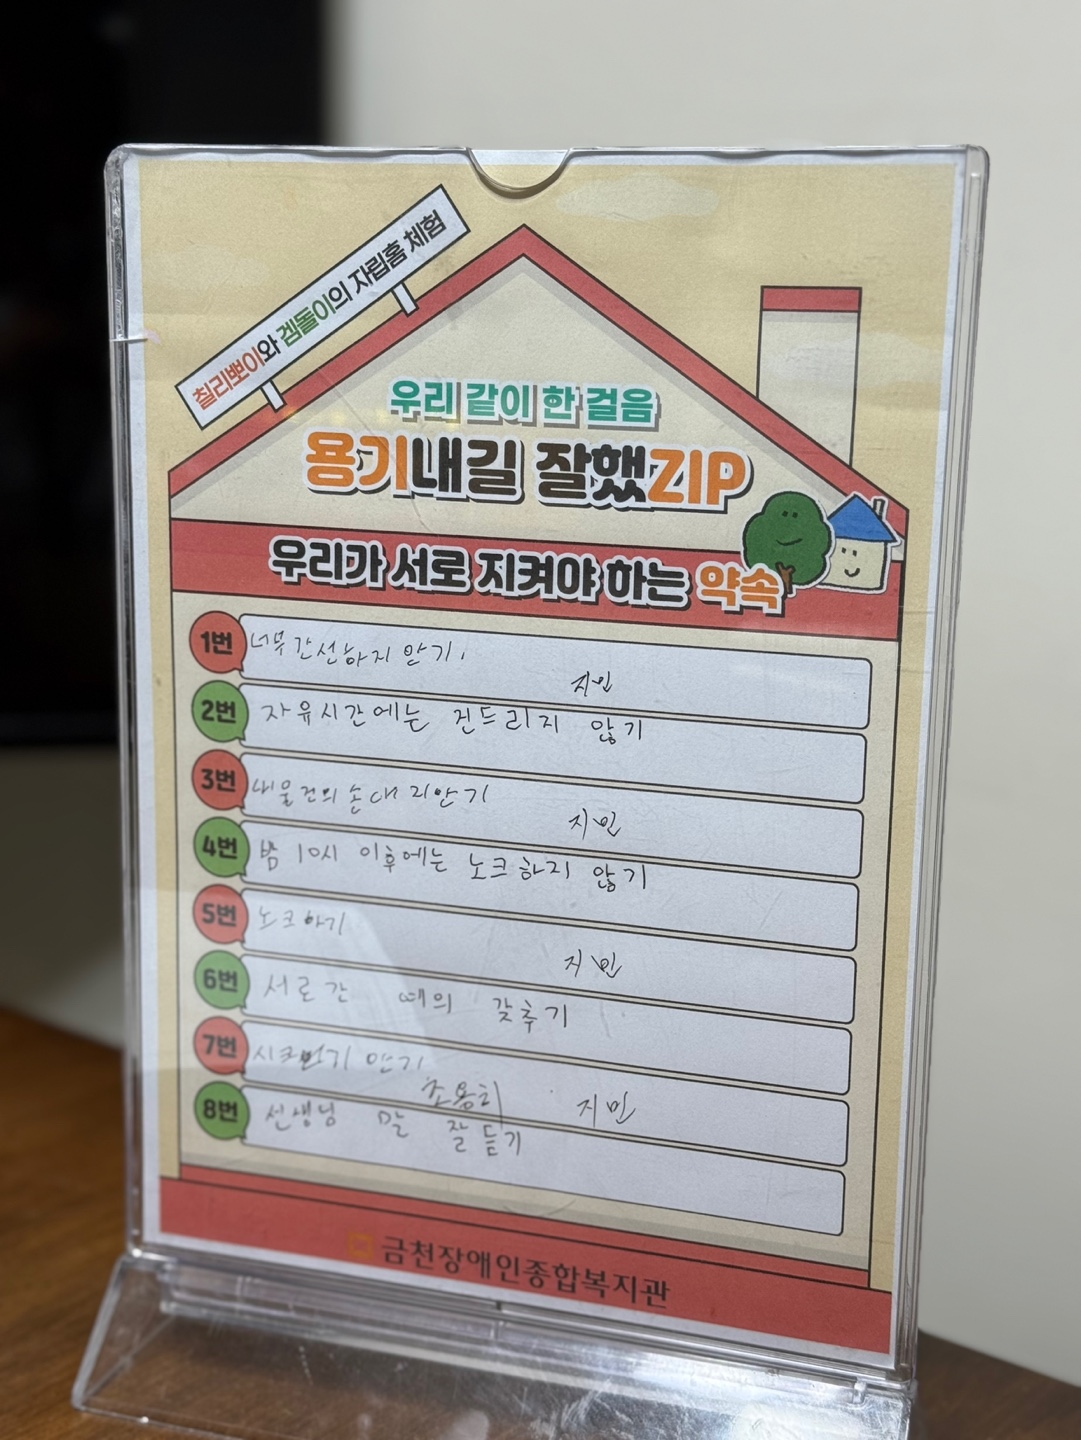 칠리뽀이와 겜돌이의 자립홈 체험
우리 같이 한 걸음
용기내길 잘했ZIP
우리가 서로 지켜야 하는 약속
1번 너무간선하지 안기.
지민
2번 자유시간에는 건드리지 않기
3번 내물건의손대지안기
지민
4번 밤 10시 이후에는 노크하지 않기
5번 노크하기
지민
6번 서로간 예의 갖추기
7번 안기
조용히 지민
8번 선생님 말 잘 듣기
금천장애인종합복지관